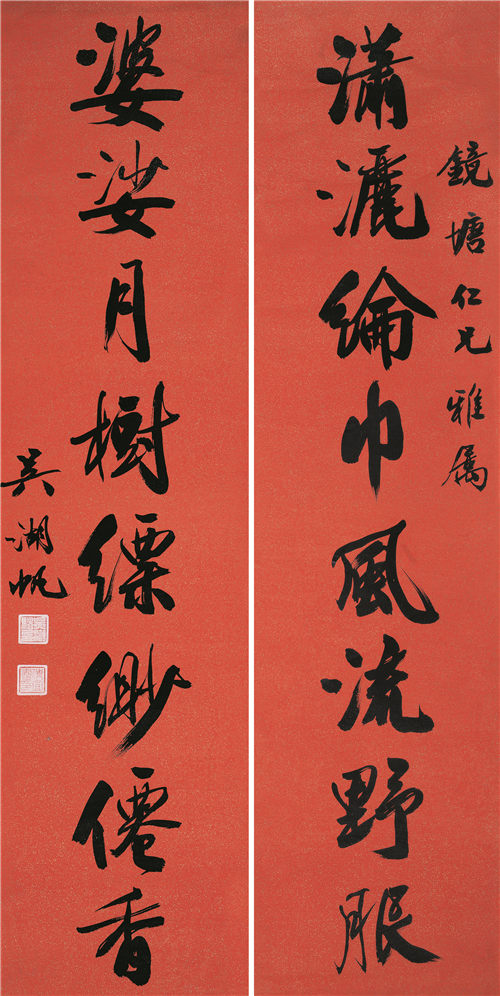 鏡塘仁兄雅属
瀟灑綸巾風流野服
婆娑月樹縹緲僊香
吴湖帆